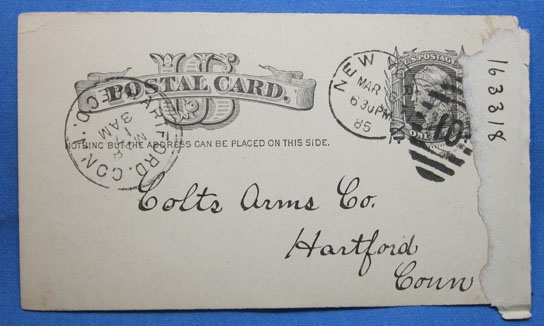 US
POSTAL CARD.
NOTHING BUT THE ADDRESS CAN BE PLACED ON THIS SIDE.
HARTFORD, CONN.
8 AM
REC'D.
NEW
MAR
630 PM
85
U.S. POSTAGE
ONE
163318
Colts Arms Co.
Hartford
Conn